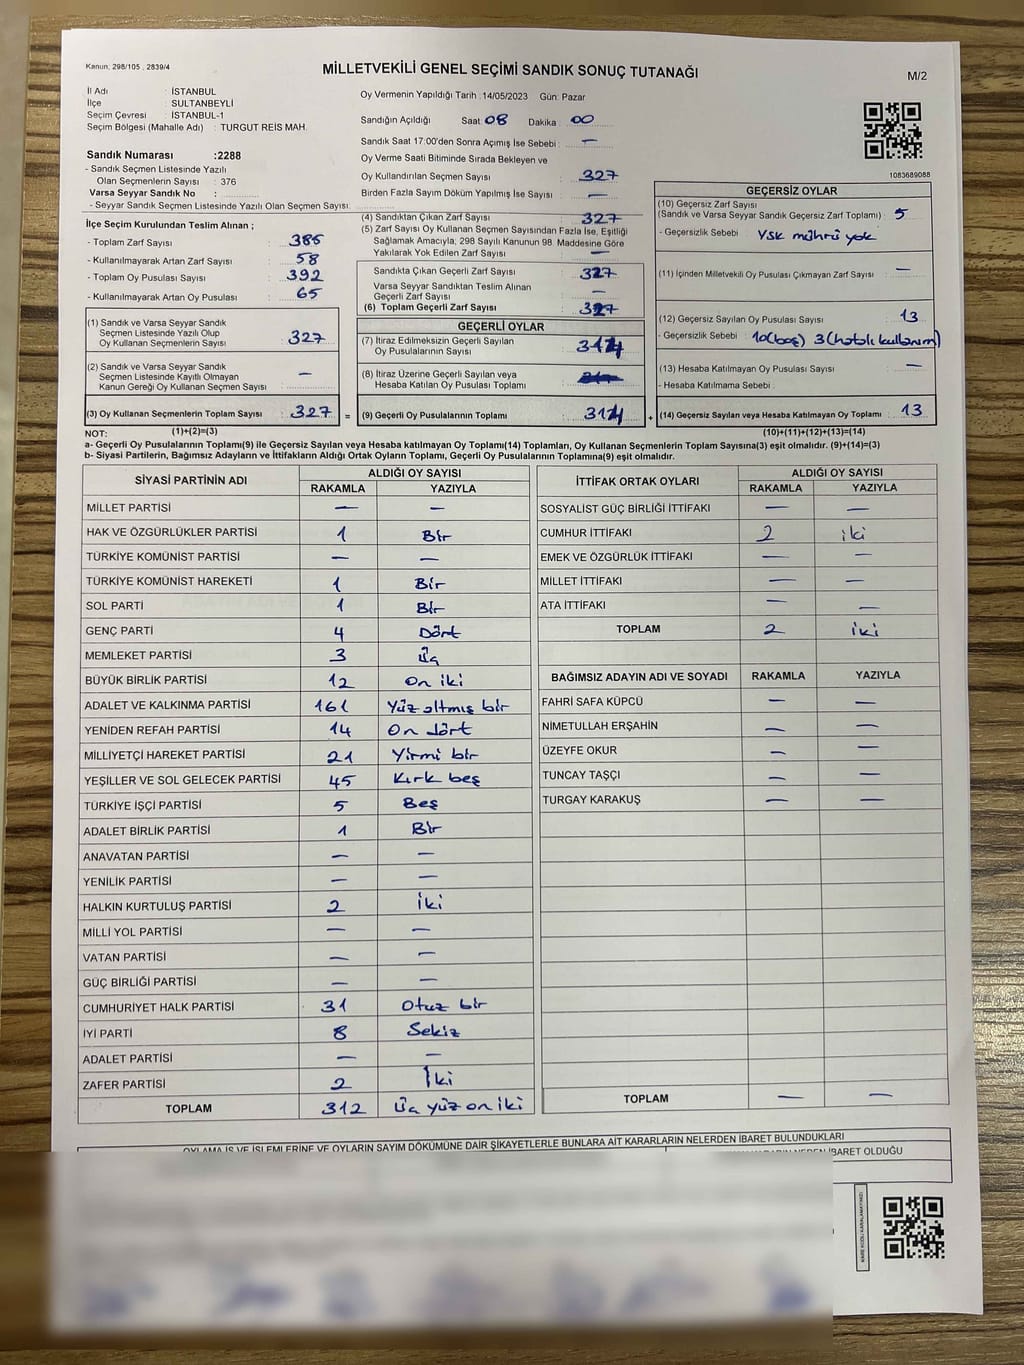 Kanun: 298/105 , 2839/4
MİLLETVEKİLİ GENEL SEÇİMİ SANDIK SONUÇ TUTANAĞI
M/2
İl Adı : İSTANBUL
İlçe : SULTANBEYLİ
Seçim Çevresi : İSTANBUL-1
Seçim Bölgesi (Mahalle Adı) : TURGUT REİS MAH.
Sandık Numarası :2288
- Sandık Seçmen Listesinde Yazılı
Olan Seçmenlerin Sayısı : 376
Varsa Seyyar Sandık No :
- Seyyar Sandık Seçmen Listesinde Yazılı Olan Seçmen Sayısı:
Oy Vermenin Yapıldığı Tarih : 14/05/2023 Gün: Pazar
Sandığın Açıldığı Saat : 08 Dakika : 00
Sandık Saat 17:00'den Sonra Açılmış İse Sebebi : —
Oy Verme Saati Bitiminde Sırada Bekleyen ve
Oy Kullandırılan Seçmen Sayısı : 327
Birden Fazla Sayım Döküm Yapılmış İse Sayısı : —
1083689088
İlçe Seçim Kurulundan Teslim Alınan ;
- Toplam Zarf Sayısı : 385
- Kullanılmayarak Artan Zarf Sayısı : 58
- Toplam Oy Pusulası Sayısı : 392
- Kullanılmayarak Artan Oy Pusulası : 65
(1) Sandık ve Varsa Seyyar Sandık
Seçmen Listesinde Yazılı Olup
Oy Kullanan Seçmenlerin Sayısı : 327
(2) Sandık ve Varsa Seyyar Sandık
Seçmen Listesinde Kayıtlı Olmayan
Kanun Gereği Oy Kullanan Seçmen Sayısı : —
(3) Oy Kullanan Seçmenlerin Toplam Sayısı : 327 =
(1)+(2)=(3)
(4) Sandıktan Çıkan Zarf Sayısı : 327
(5) Zarf Sayısı Oy Kullanan Seçmen Sayısından Fazla İse, Eşitliği
Sağlamak Amacıyla; 298 Sayılı Kanunun 98. Maddesine Göre
Yakılarak Yok Edilen Zarf Sayısı : —
Sandıkta Çıkan Geçerli Zarf Sayısı : 327
Varsa Seyyar Sandıktan Teslim Alınan
Geçerli Zarf Sayısı : —
(6) Toplam Geçerli Zarf Sayısı : 327
GEÇERLİ OYLAR
(7) İtiraz Edilmeksizin Geçerli Sayılan
Oy Pusulalarının Sayısı : 314
(8) İtiraz Üzerine Geçerli Sayılan veya
Hesaba Katılan Oy Pusulası Toplamı :
(9) Geçerli Oy Pusulalarının Toplamı : 314 +
GEÇERSİZ OYLAR
(10) Geçersiz Zarf Sayısı
(Sandık ve Varsa Seyyar Sandık Geçersiz Zarf Toplamı) : 5
- Geçersizlik Sebebi : YSK mührü yok
(11) İçinden Milletvekili Oy Pusulası Çıkmayan Zarf Sayısı : —
(12) Geçersiz Sayılan Oy Pusulası Sayısı : 13
- Geçersizlik Sebebi : 10(boş) 3(hatalı kullanım)
(13) Hesaba Katılmayan Oy Pusulası Sayısı : —
- Hesaba Katılmama Sebebi :
(14) Geçersiz Sayılan veya Hesaba Katılmayan Oy Toplamı : 13
(10)+(11)+(12)+(13)=(14)
NOT:
a- Geçerli Oy Pusulalarının Toplamı(9) ile Geçersiz Sayılan veya Hesaba katılmayan Oy Toplamı(14) Toplamları, Oy Kullanan Seçmenlerin Toplam Sayısına(3) eşit olmalıdır. (9)+(14)=(3)
b- Siyasi Partilerin, Bağımsız Adayların ve İttifakların Aldığı Ortak Oyların Toplamı, Geçerli Oy Pusulalarının Toplamına(9) eşit olmalıdır.
SİYASİ PARTİNİN ADI ALDIĞI OY SAYISI
RAKAMLA YAZIYLA
MİLLET PARTİSİ — —
HAK VE ÖZGÜRLÜKLER PARTİSİ 1 Bir
TÜRKİYE KOMÜNİST PARTİSİ — —
TÜRKİYE KOMÜNİST HAREKETİ 1 Bir
SOL PARTİ 1 Bir
GENÇ PARTİ 4 Dört
MEMLEKET PARTİSİ 3 Üç
BÜYÜK BİRLİK PARTİSİ 12 On iki
ADALET VE KALKINMA PARTİSİ 161 Yüz altmış bir
YENİDEN REFAH PARTİSİ 14 On dört
MİLLİYETÇİ HAREKET PARTİSİ 21 Yirmi bir
YEŞİLLER VE SOL GELECEK PARTİSİ 45 Kırk beş
TÜRKİYE İŞÇİ PARTİSİ 5 Beş
ADALET BİRLİK PARTİSİ 1 Bir
ANAVATAN PARTİSİ — —
YENİLİK PARTİSİ — —
HALKIN KURTULUŞ PARTİSİ 2 İki
MİLLİ YOL PARTİSİ — —
VATAN PARTİSİ — —
GÜÇ BİRLİĞİ PARTİSİ — —
CUMHURİYET HALK PARTİSİ 31 Otuz bir
İYİ PARTİ 8 Sekiz
ADALET PARTİSİ — —
ZAFER PARTİSİ 2 İki
TOPLAM 312 Üç yüz on iki
İTTİFAK ORTAK OYLARI ALDIĞI OY SAYISI
RAKAMLA YAZIYLA
SOSYALİST GÜÇ BİRLİĞİ İTTİFAKI — —
CUMHUR İTTİFAKI 2 iki
EMEK VE ÖZGÜRLÜK İTTİFAKI — —
MİLLET İTTİFAKI — —
ATA İTTİFAKI — —
TOPLAM 2 iki
BAĞIMSIZ ADAYIN ADI VE SOYADI RAKAMLA YAZIYLA
FAHRİ SAFA KÜPCÜ — —
NİMETULLAH ERŞAHİN — —
ÜZEYFE OKUR — —
TUNCAY TAŞÇI — —
TURGAY KARAKUŞ — —
TOPLAM — —
OYLAMA İŞ VE İŞLEMLERİNE VE OYLARIN SAYIM DÖKÜMÜNE DAİR ŞİKAYETLERLE BUNLARA AİT KARARLARIN NELERDEN İBARET BULUNDUKLARI
İBARET OLDUĞU